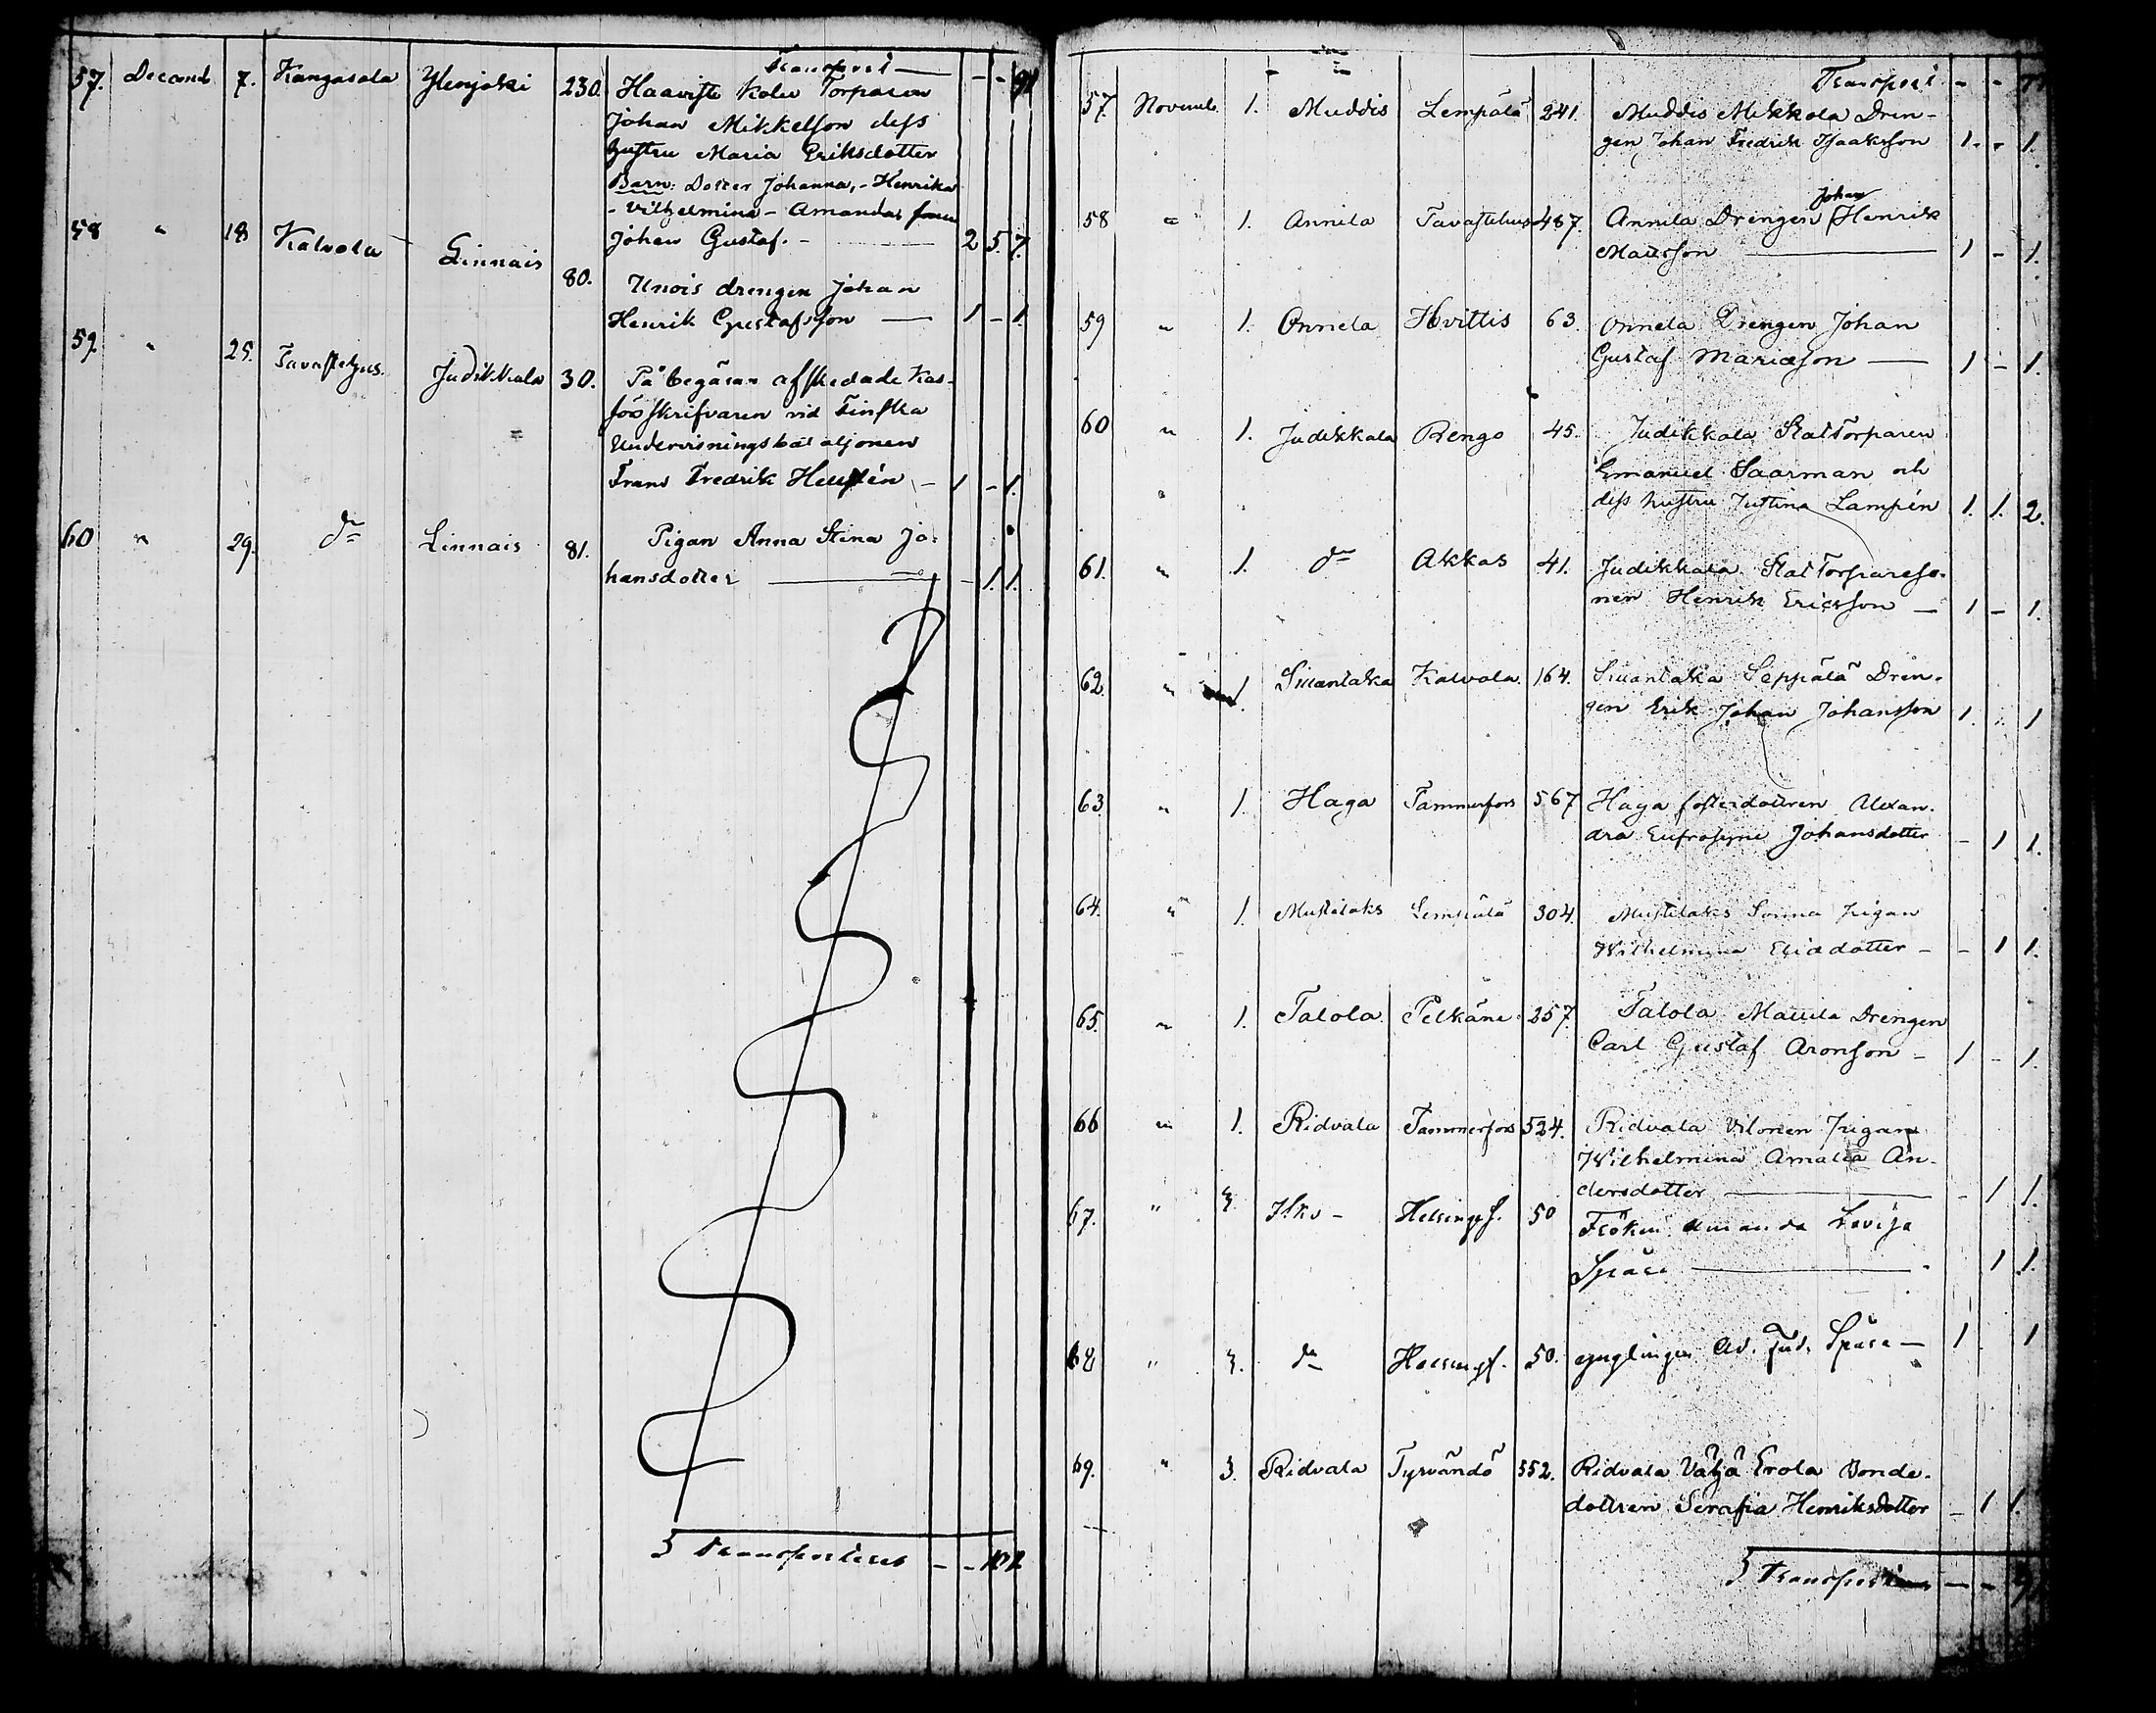 Transport — - - 91
57. Decemb. 7. Kangasala Ylenjoki 230. Haavisto Kolu Torparen
Johan Mikkelson dess
hustru Maria Eriksdotter
Barn: Dotter Johanna, - Henrika
- Vilhelmina - Amanda
Johan Gustaf. - 2 5. 7.
58 " 18 Kalvola Linnais 80. Unois drengen Johan
Henrik Gustafsson — 1 - 1.
59. " 25. Tavastehus. Judikkala 30. På begäran afskedade
skrifvaren vid Finska
Undervisningsbataljonen
Frans Fredrik - 1 - 1.
60 " 29. do Linnais 81. Pigan Anna Stina Jo-
hansdotter — - 1. 1.
Transporteres - - 102
Transport - -
57. Novemb. 1. Muddis Lempälä 241. Muddis Mikkola Dren-
gen Johan Fredrik Isaaksson 1. - 1.
58 " 1. Annila Tavastehus 487. Annila Drengen Johan Henrik
Matsson — 1 - 1.
59 " 1. Onnela Hvittis 63. Onnela Drengen Johan
Gustaf Mariæson — 1 - 1.
60 " 1. Judikkala Rengo 45. Judikkala Stattorparen
Emanuel Saarman och
dess hustru Justina Lampén 1. 1. 2.
61. " 1. do Akkas 41. Judikkala Stattorpareso-
nen Henrik Ericsson — 1 - 1.
62. " 1. Kalvola. 164. Seppälä Dren-
gen Erik Johan Johansson 1. 1
63 " 1. Haga Tammerfors 567 Haga fosterdottren Alexan-
dra Eufrosyne Johansdotter - 1 1.
64. " 1. Lempälä 304. pigan
Wilhelmina - - 1 1.
65. " 1. Talola. Pelkäne. 257. Talola Mattila Drengen
Carl Gustaf Aronson - 1 - 1.
66 " 1. Ridvala Tammerfors 524. Ridvala Pigan
Wilhelmina Amalia An-
dersdotter — - 1 1.
67. " 3. Helsingf. 50 Fröken Amanda Lovisa
Spåre — 1 1.
68 " 3. do Helsingf. 50. ynglingen Ad. Spåre — 1 1
69. " 3. Ridvala Tyrvändö 552. Ridvala Vähä Erola Bonde-
dottren Serafia Henriksdotter - 1 1.